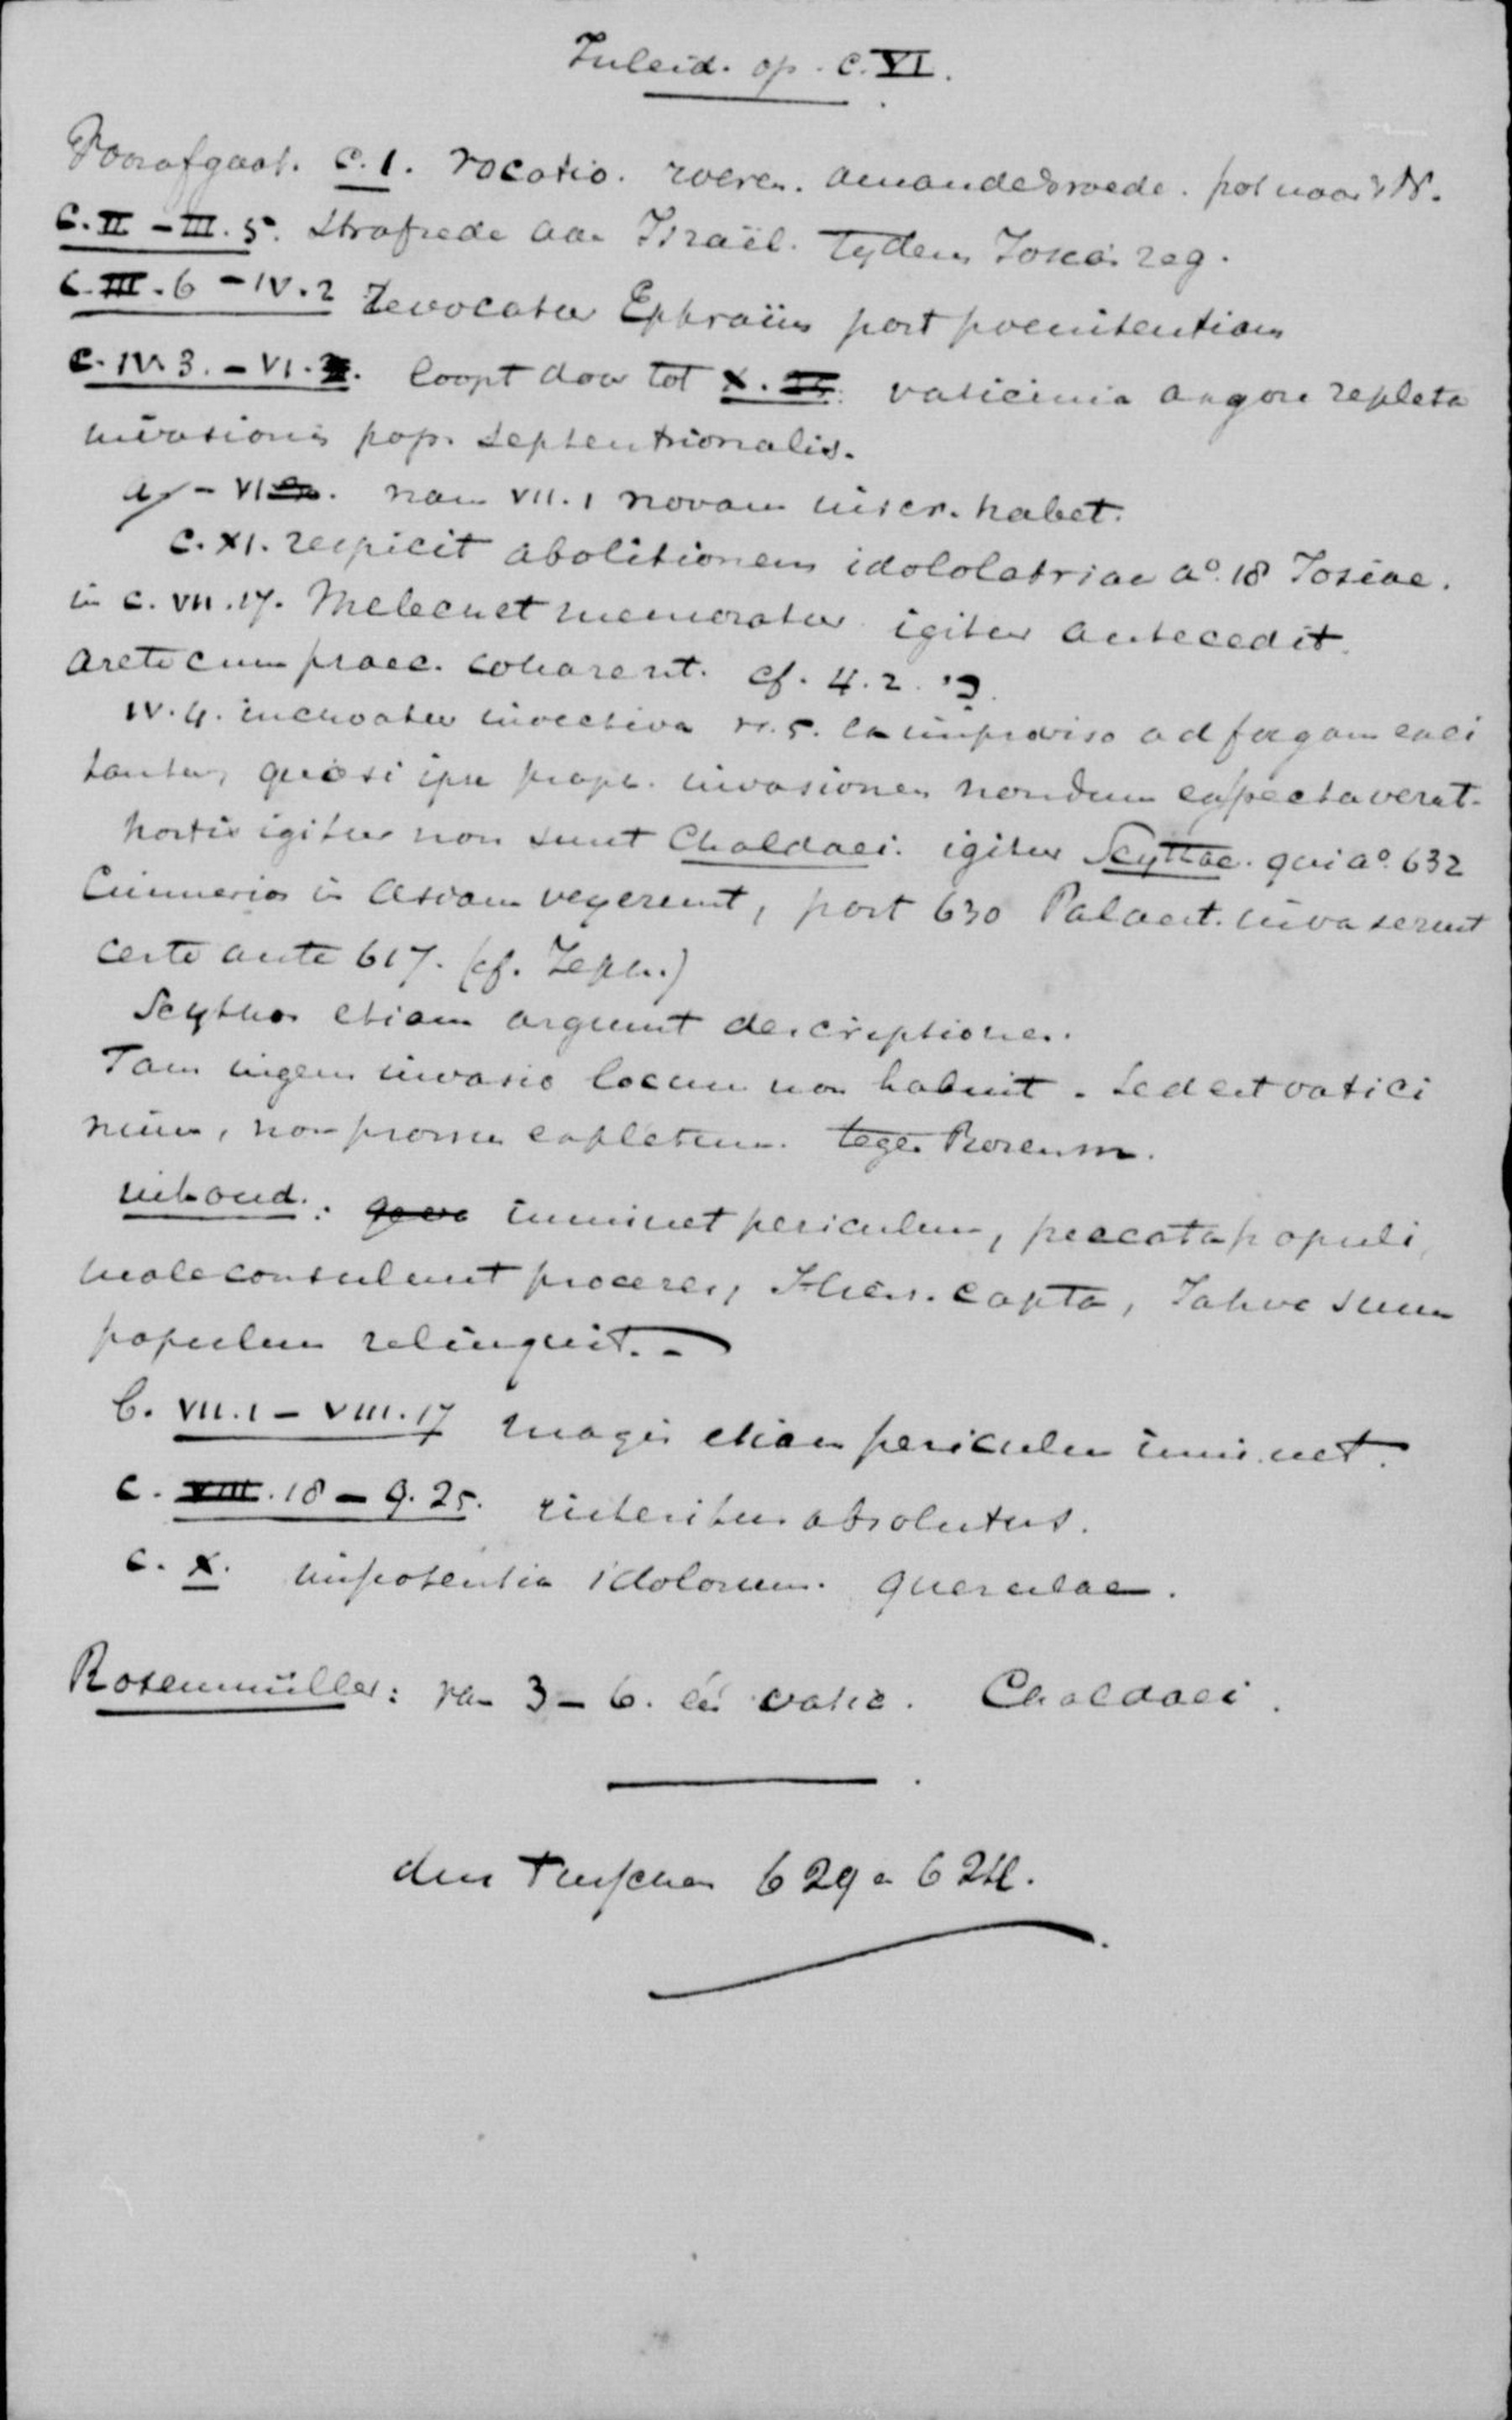 Inleid. op. c. VI.
Voorafgaat. c. 1. vocatio. zoeven. amandelroede. pot naar 't N.
C. II – III. 5. Strafrede aan Israël. tydens Josia's reg.
C. III. 6 – IV. 2 Revocatur Ephraïm post poenitentiam
C. IV. 3. – VI. loopt door tot X. vaticinia angore repleta
invasionis pop. septentrionalis.
a/ – VI. nam VII. 1 novam inscr. habet.
C. XI. respicit abolitionem idololatriae aº. 18 Josiae.
in c. VII. 17. Melechet memoratur igitur antecedit.
Arcte cum praec. cohaerent. cf. 4. 2. כי
IV. 4. inchoatur invectiva vs. 5. ex improviso ad fugam exci
tantur, quasi ipse proph. invasionem nondum expectaverat.
hostis igitur non sunt Chaldaei. igitur Scythae. qui aº. 632
Cimmerios in Asiam vegerunt, post 630 Palaest. invaserunt
certe ante 617. (cf. Zeph.)
Scythas etiam arguunt descriptiones.
Tam ingens invasio locum non habuit. Sed est vatici
nium, non prorsus expletum. tegen Rosenm.
inhoud.: imminet periculum, peccata populi,
male consulunt proceres, Hier. capta, Jahve suum
populum relinquit. –
C. VII. 1 – VIII. 17 magis etiam periculum imminet.
C. VIII. 18 – 9. 25. interitus absolutus.
C. X. impotentia idolorum. querelae.
Rosenmüller: van 3 – 6. één vatic. Chaldaei.
dus tusschen 629 en 624.